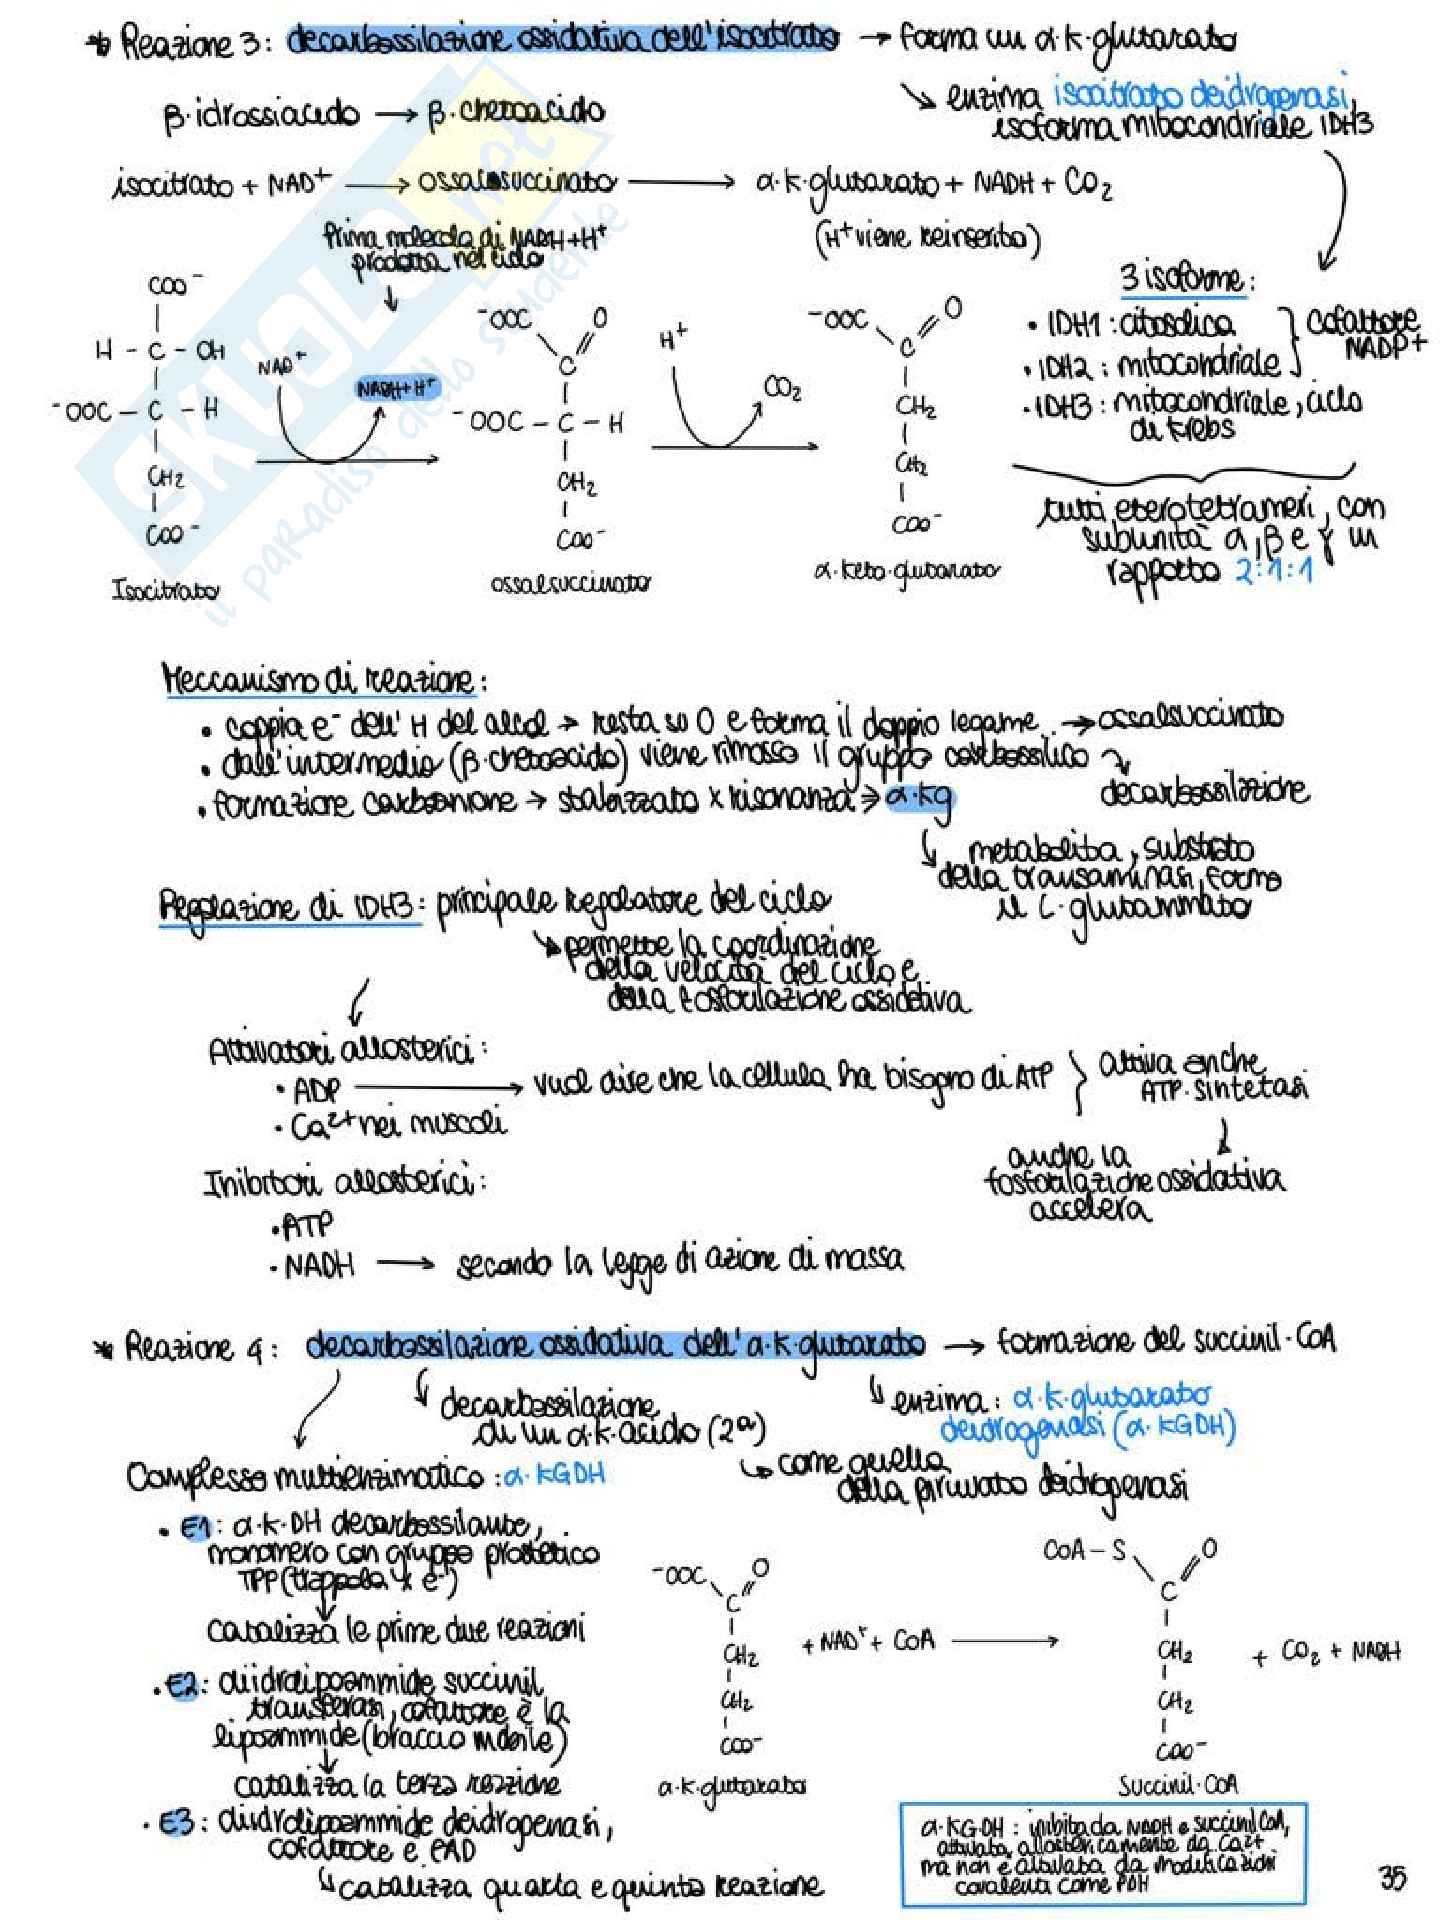 * Reazione 3: decarbossilazione ossidativa dell'isocitrato → forma un α·k·glutarato
↘ enzima isocitrato deidrogenasi,
isoforma mitocondriale IDH3
β·idrossiacido → β·chetoacido
isocitrato + NAD⁺ → ossalosuccinato → α·k·glutarato + NADH + CO₂
Prima molecola di NADH + H⁺
prodotta nel ciclo
(H⁺ viene reinserito)
3 isoforme:
• IDH1: citosolica
• IDH2: mitocondriale
} cofattore
NADP+
• IDH3: mitocondriale, ciclo
di Krebs
tutti eterotetrameri, con
subunità α, β e γ in
rapporto 2:1:1
COO⁻
H - C - OH
⁻OOC - C - H
CH₂
COO⁻
Isocitrato
NAD⁺
NADH + H⁺
⁻OOC O
C
⁻OOC - C - H
CH₂
COO⁻
ossalsuccinato
H⁺
CO₂
⁻OOC O
C
CH₂
CH₂
COO⁻
α·keto·glutarato
Meccanismo di reazione:
• coppia e⁻ dell'H del alcol → resta su O e forma il doppio legame → ossalsuccinato
• dall'intermedio (β·chetoacido) viene rimosso il gruppo carbossilico
decarbossilazione
• formazione carbanione → stabilizzato x risonanza → α·kg
metabolita, substrato
della transaminasi, forma
il L·glutammato
Regolazione di IDH3: principale regolatore del ciclo
↘ permette la coordinazione
della velocità del ciclo e
della fosforilazione ossidativa
Attivatori allosterici:
• ADP → vuol dire che la cellula ha bisogno di ATP
• Ca²⁺ nei muscoli
} attiva anche
ATP·sintetasi
anche la
fosforilazione ossidativa
accelera
Inibitori allosterici:
• ATP
• NADH → secondo la legge di azione di massa
* Reazione 4: decarbossilazione ossidativa dell'α·k·glutarato → formazione del succinil·CoA
decarbossilazione
di un α·k·acido (2ª)
↳ enzima: α·k·glutarato
deidrogenasi (α·KGDH)
↳ come quella
della piruvato deidrogenasi
Complesso multienzimatico: α·KGDH
• E1: α·k·DH decarbossilante,
monomero con gruppo prostetico
TPP (trappola x e⁻)
catalizza le prime due reazioni
• E2: diidrolipoammide succinil
transferasi, cofattore è la
lipoammide (braccio mobile)
catalizza la terza reazione
• E3: diidrolipoammide deidrogenasi,
cofattore è FAD
↳ catalizza quarta e quinta reazione
⁻OOC O
C
CH₂
CH₂
COO⁻
α·k·glutarato
+ NAD⁺ + CoA →
CoA - S O
C
CH₂
CH₂
COO⁻
Succinil·CoA
+ CO₂ + NADH
α·KGDH: inibita da NADH e succinil CoA,
attivata allostericamente da Ca²⁺
ma non è attivata da modificazioni
covalenti come PDH
35
SKUOLA.net
il paradiso dello studente